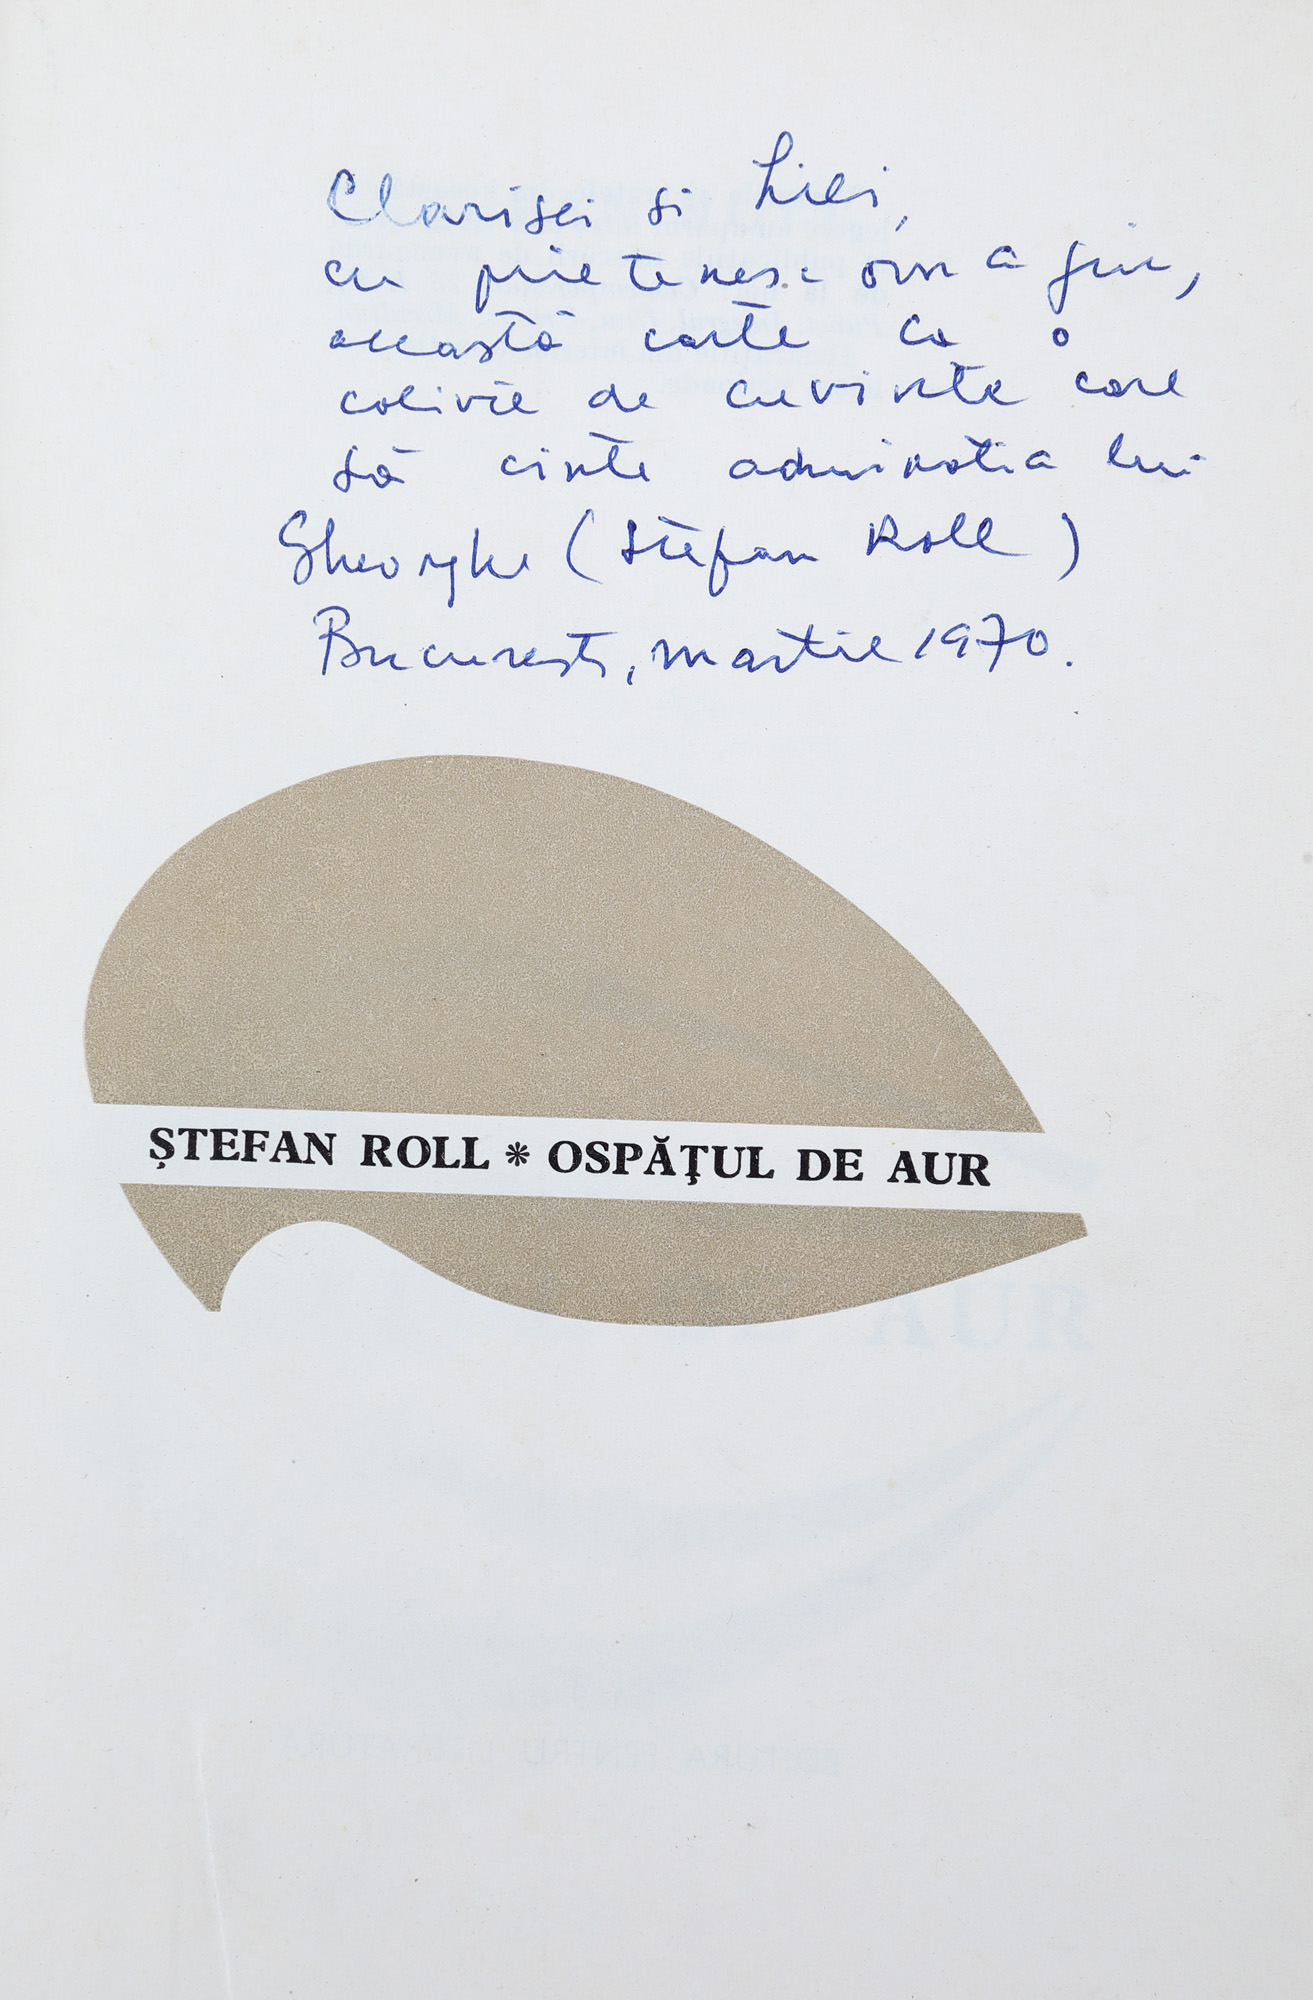 Clarisei si Lili,
cu prietenesc omagiu,
această carte ca o
colivie de cuvinte care
să cînte admirația lui
Gheorghe (Ștefan Roll)
București, martie 1970.
ȘTEFAN ROLL * OSPĂȚUL DE AUR